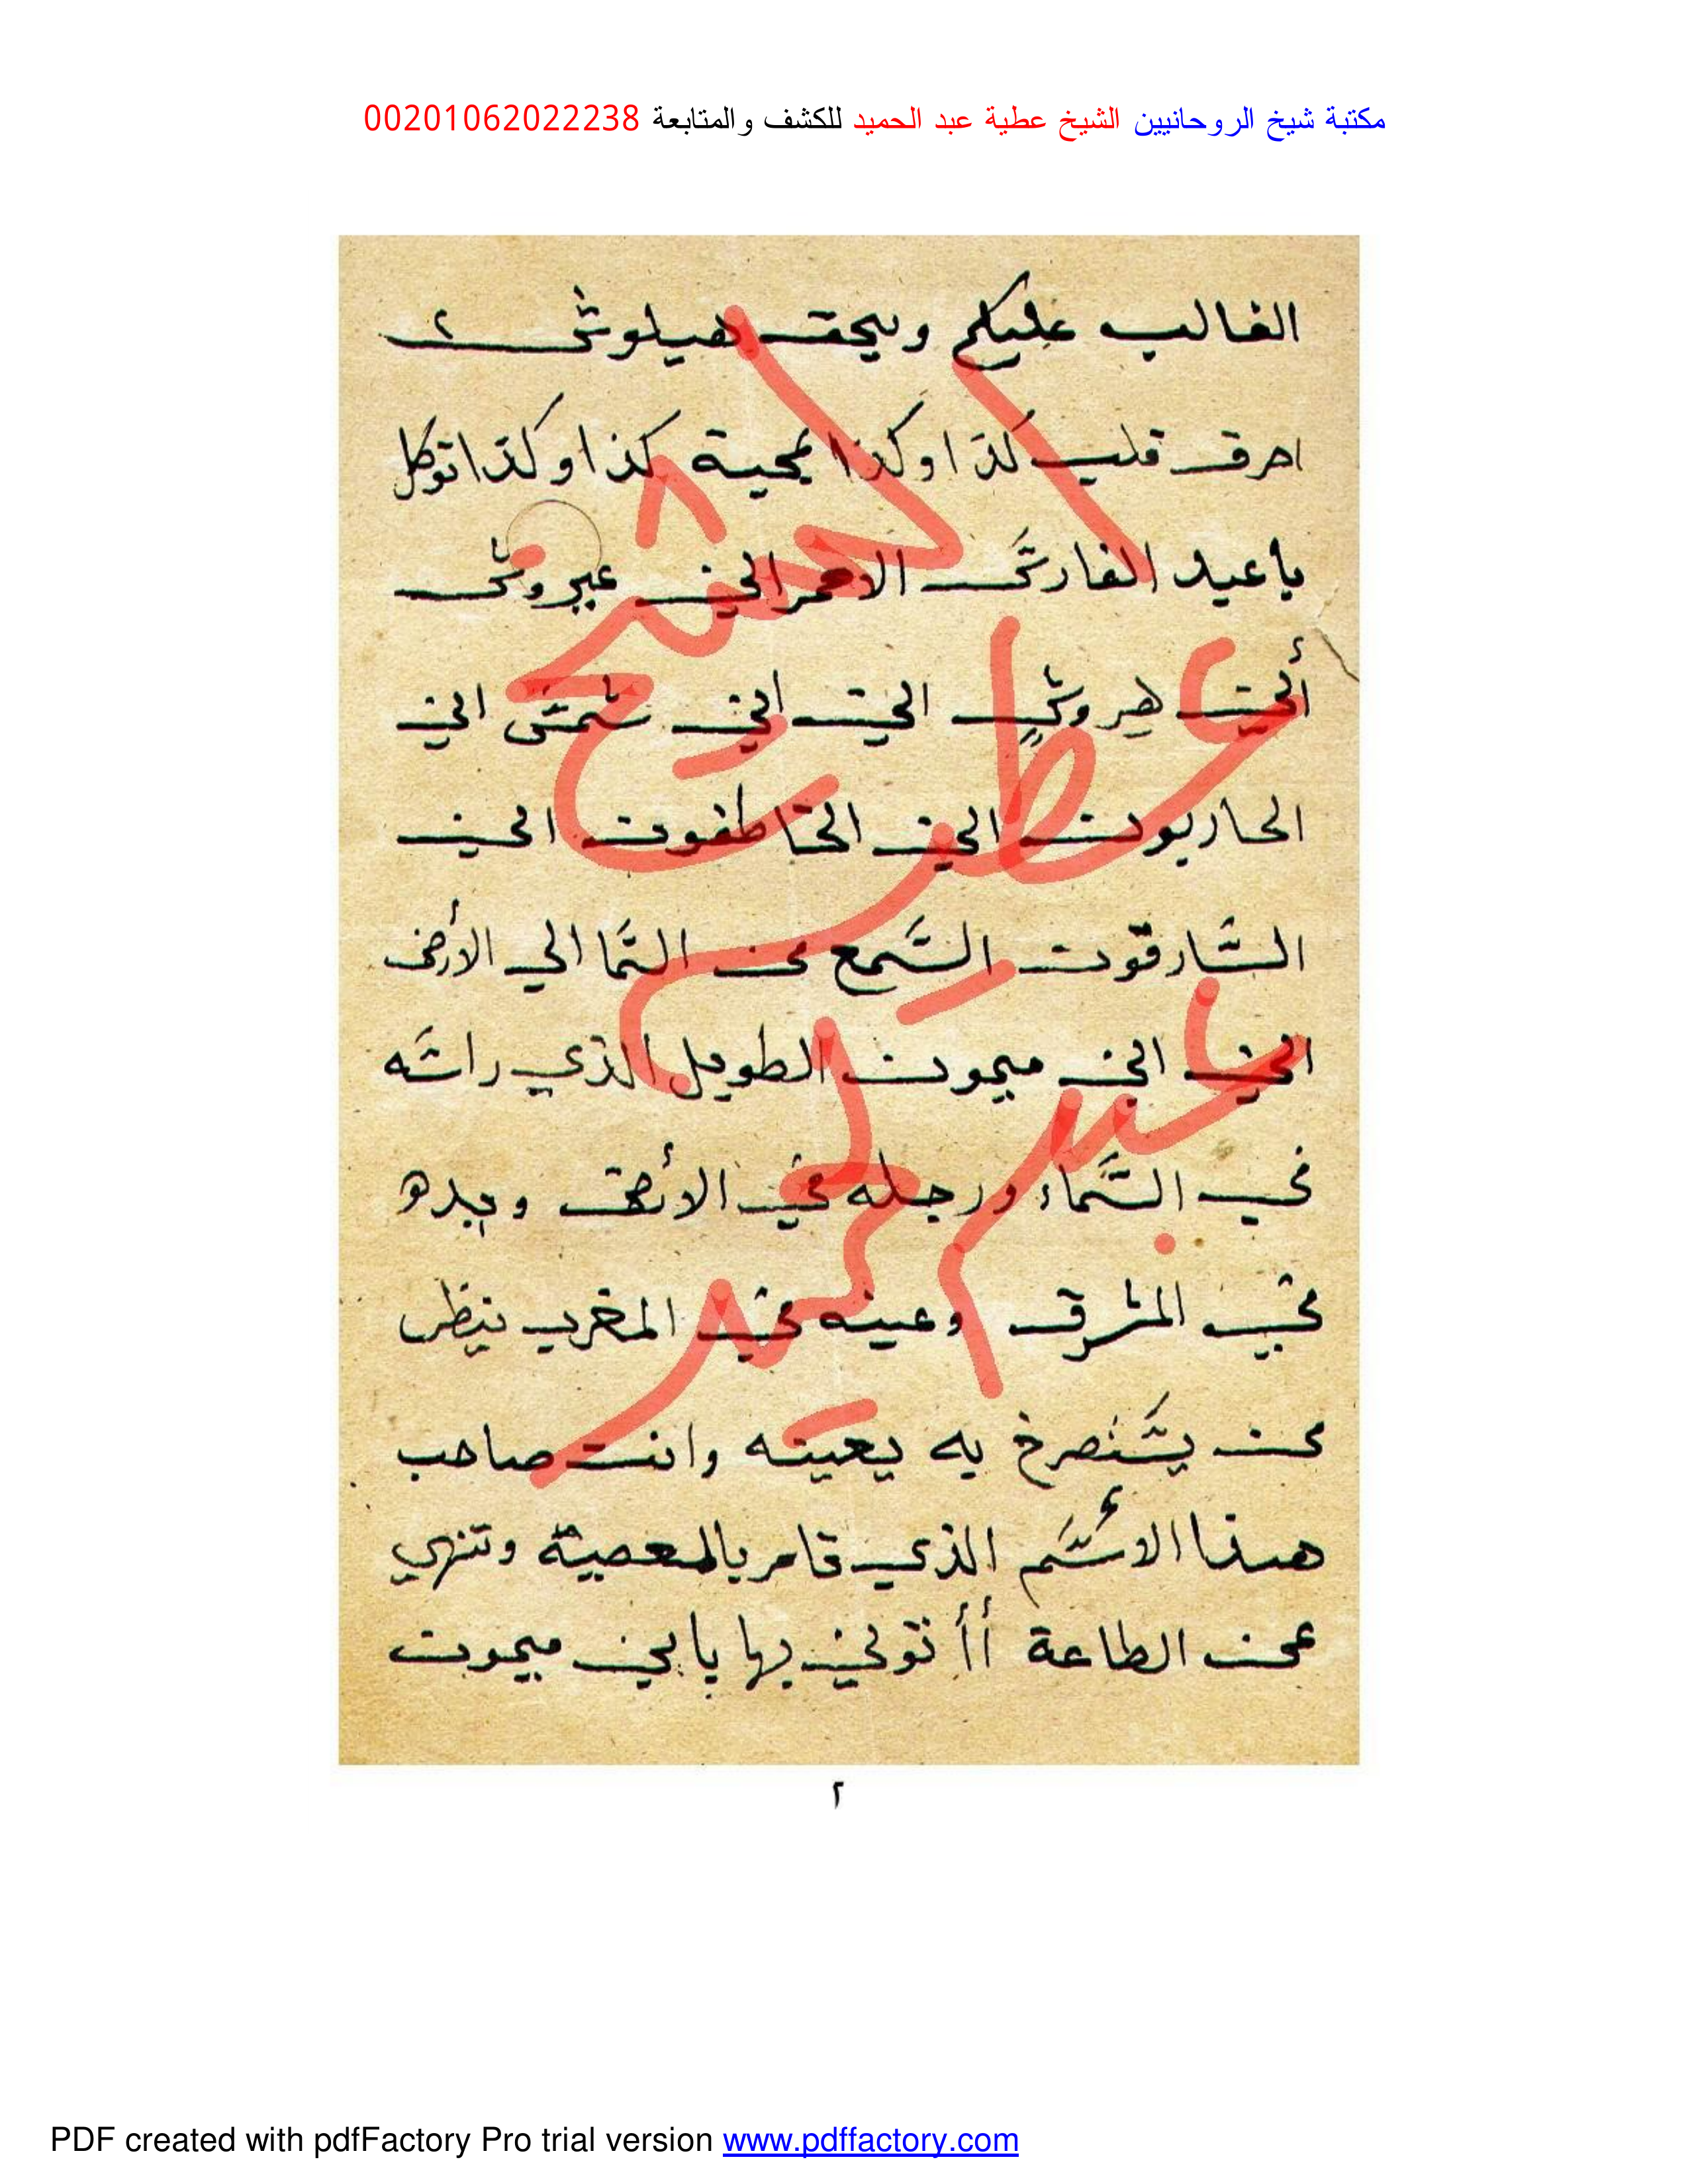 مكتبة شيخ الروحانيين الشيخ عطية عبد الحميد للكشف والمتابعة 00201062022238
الغالب عليكم وبحق هيلوش ٢
احرق قلب كذا وكذا بمحبة كذا وكذا توكل
يا عبد الفارش الاحمر ابن عبروش
ابن هروش ابن ابن شمش ابن
الحاربون ابن الخاطفون ابن
السارقون السمع من السما الي الأرض
ابن ميمون الطويل الذي راسه
في السماء ورجله في الأرض ويده
في المشرق وعينه في المغرب ينظر
من يستصرخ به يعينه وانت صاحب
هذا الاسم الذي تامر بالمعصية وتنهي
عن الطاعة بها يا ابن ميمون
الشيخ
عطية
عبد
الحميد
٢
PDF created with pdfFactory Pro trial version www.pdffactory.com